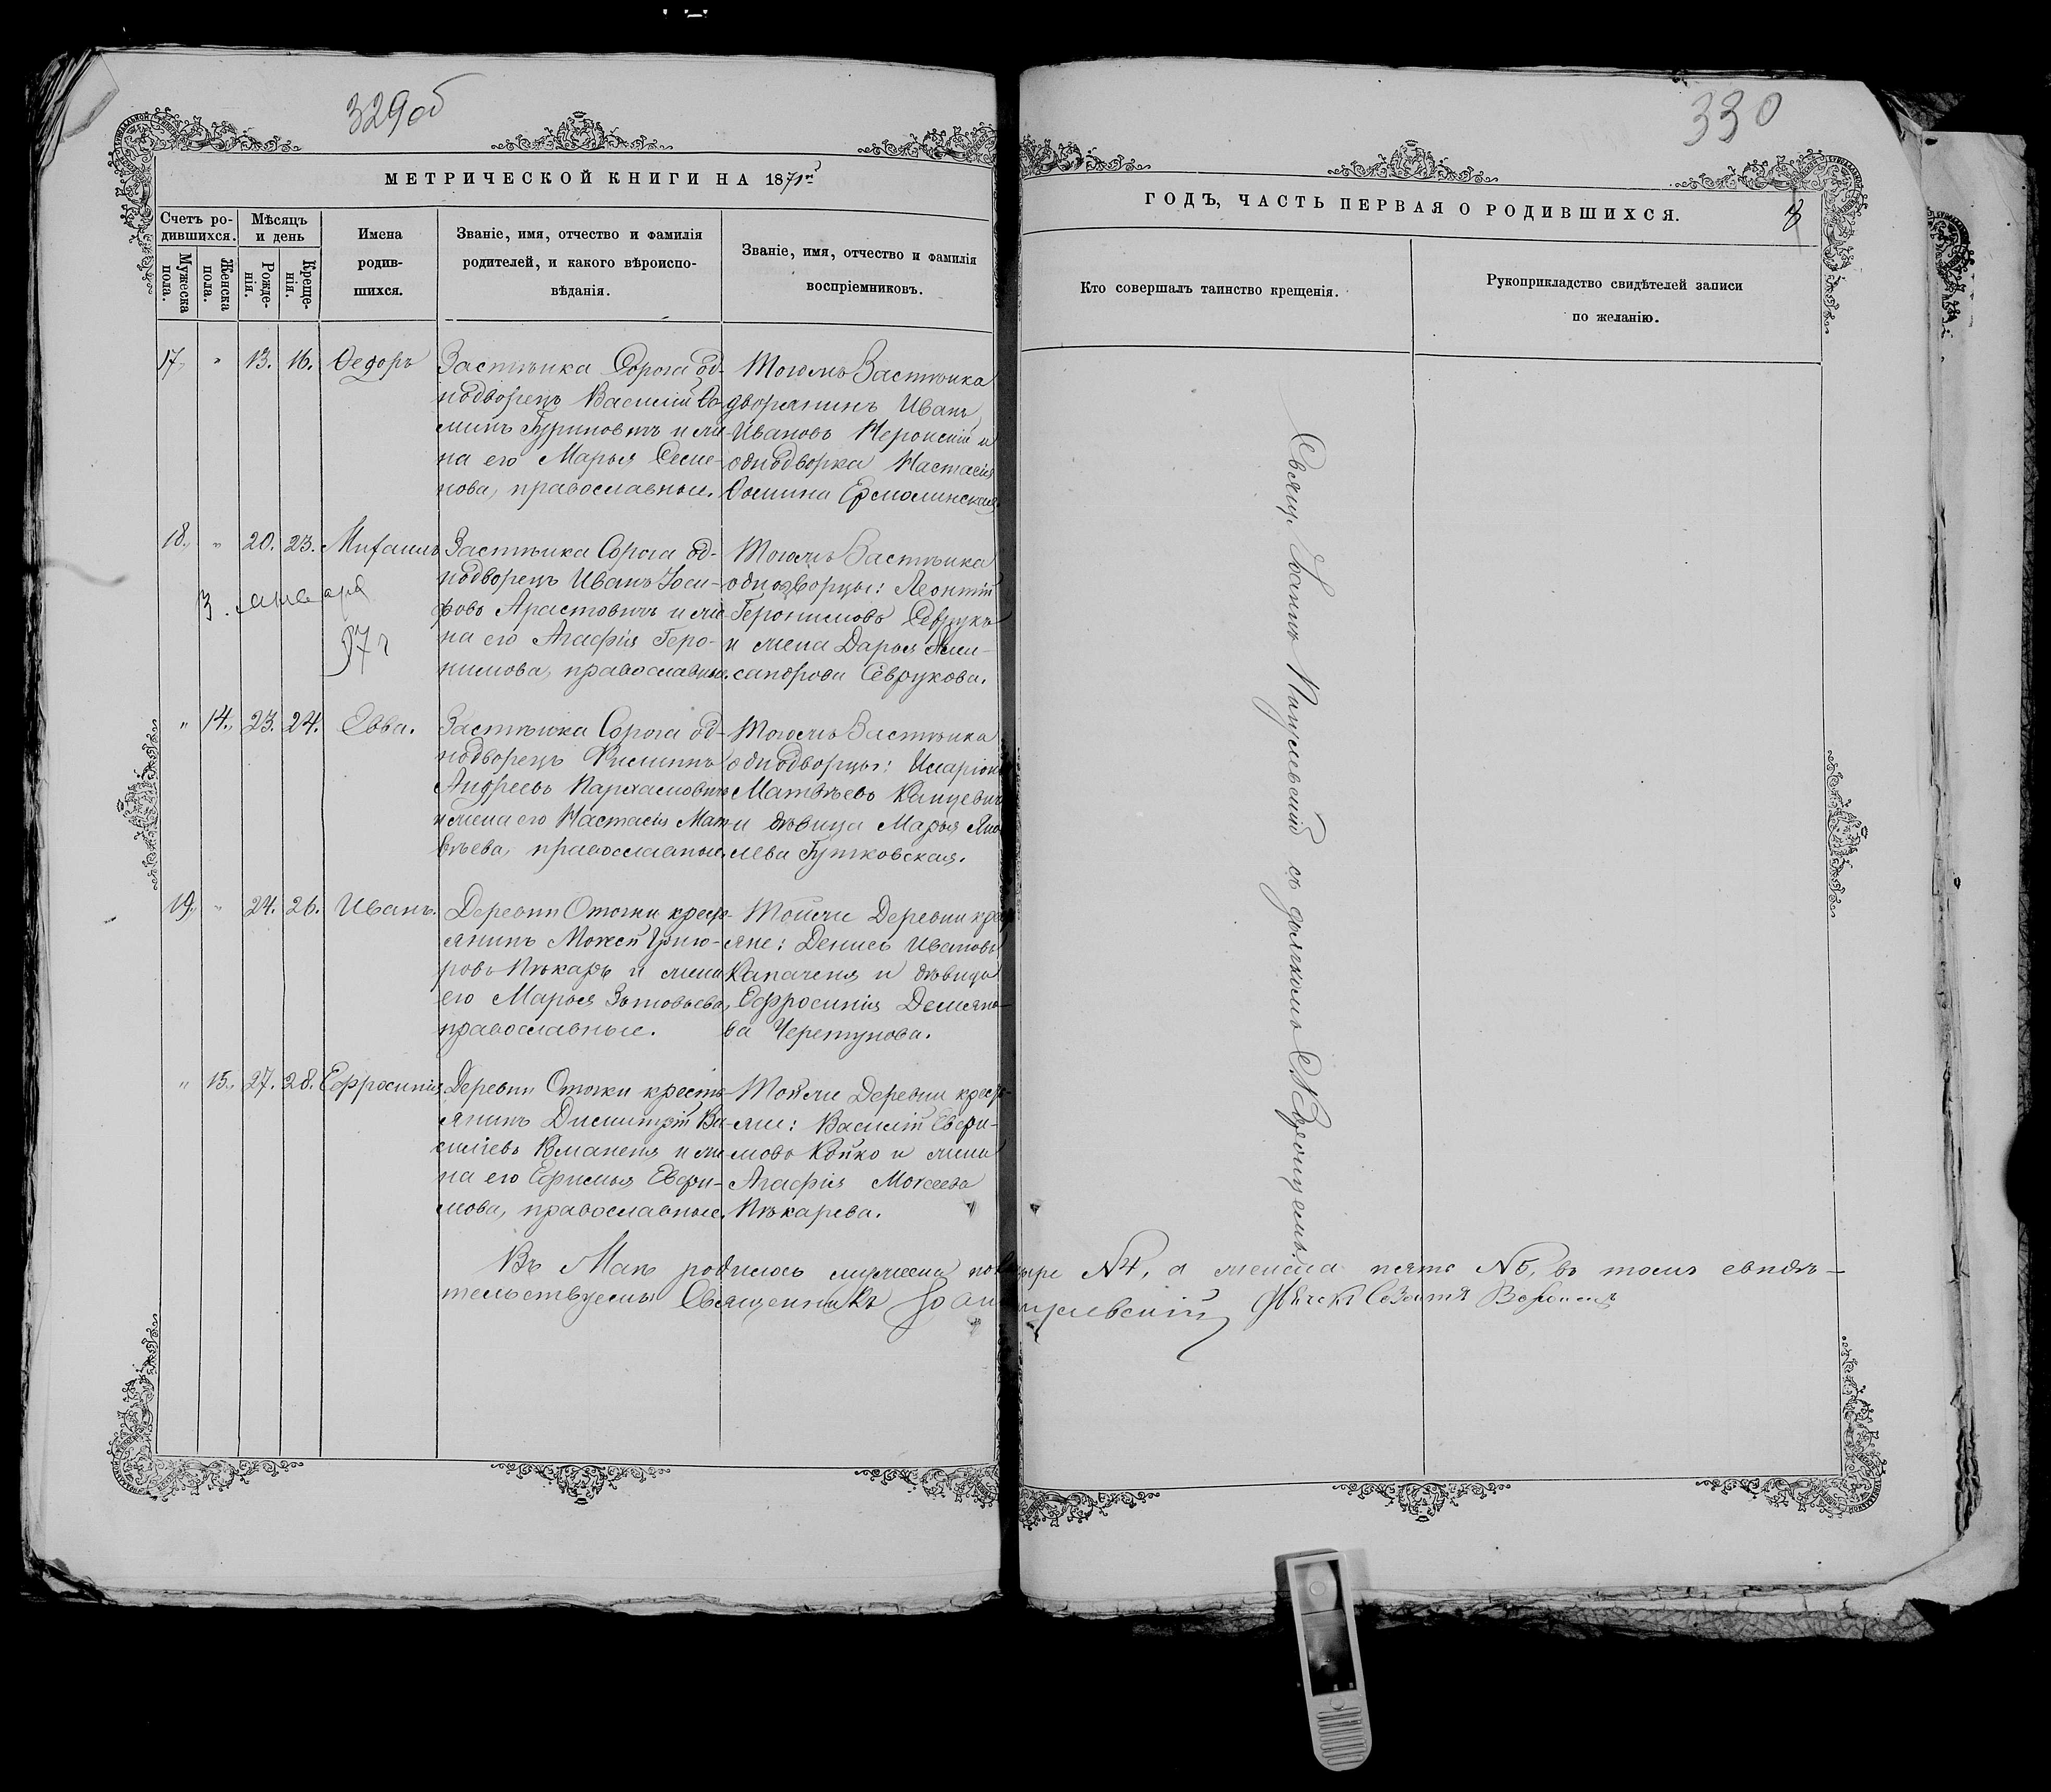 329об
330
МЕТРИЧЕСКОЙ КНИГИ НА 1871й
ГОДЪ, ЧАСТЬ ПЕРВАЯ О РОДИВШИХСЯ.
3
Счетъ ро-
дившихся.
Мужеска
пола.
Женска
пола.
Мѣсяцъ
и день
Рожде-
нія.
Креще-
нія.
Имена
родив-
шихся.
Званіе, имя, отчество и фамилія
родителей, и какого вѣроиспо-
вѣданія.
Званіе, имя, отчество и фамилія
воспріемниковъ.
Кто совершалъ таинство крещенія.
Рукоприкладство свидѣтелей записи
по желанію.
17. " 13. 16. Ѳедоръ
Застѣнка Сорога од-
нодворецъ Василій Ѳо-
минъ Гуриновичъ и же-
на его Марья Семе-
нова, православные.
Тогожъ Застѣнка
дворянинъ Иванъ
Ивановъ Жеронскій и
однодворка Настасія
Ѳомина Ермолинская.
18. " 20. 23. Михаилъ
3. января
97 г
Застѣнка Сорога од-
нодворецъ Иванъ Іоси-
фовъ Арастовичъ и же-
на его Агафія Геро-
нимова, православные.
Тогожъ Застѣнка
однодворцы: Леонтій
Геронимовъ Севрукъ
и жена Дарья Алек-
сандрова Севрукова.
" 14. 23. 24. Евва.
Застѣнка Сорога од-
нодворецъ Филиппъ
Андреевъ Пархамовичъ
и жена его Настасія Мат-
вѣева, православные.
Тогожъ Застѣнка
однодворцы: Иларіонъ
Матвѣевъ Канцевичъ
и дѣвица Марья Яко-
лева Гутковская.
19. " 24. 26. Иванъ.
Деревни Отожки крест-
янинъ Мокей Григо-
ровъ Пѣкарь и жена
его Марья Зѣновьева,
православные.
Тойже Деревни крест-
яне: Денисъ Ивановъ
Капаченя и дѣвица
Ефросинія Демьяно-
ва Черетунова.
" 15. 27. 28. Ефросинія
Деревни Отожки кресть-
янинъ Димитрій Ва-
силіевъ Романеня и же-
на его Ефимья Евфи-
мова, православные.
Тойже Деревни крест-
яне: Василій Евфи-
мовъ Койко и жена
Агафія Мокеева
Пѣкарева.
Свящ. Іоаннъ с дьячкомъ
Въ Маѣ родилось мужеска пола четыре №4, а женска пять №5, въ томъ свидѣ-
тельствуемъ Священникъ Іоаннъ